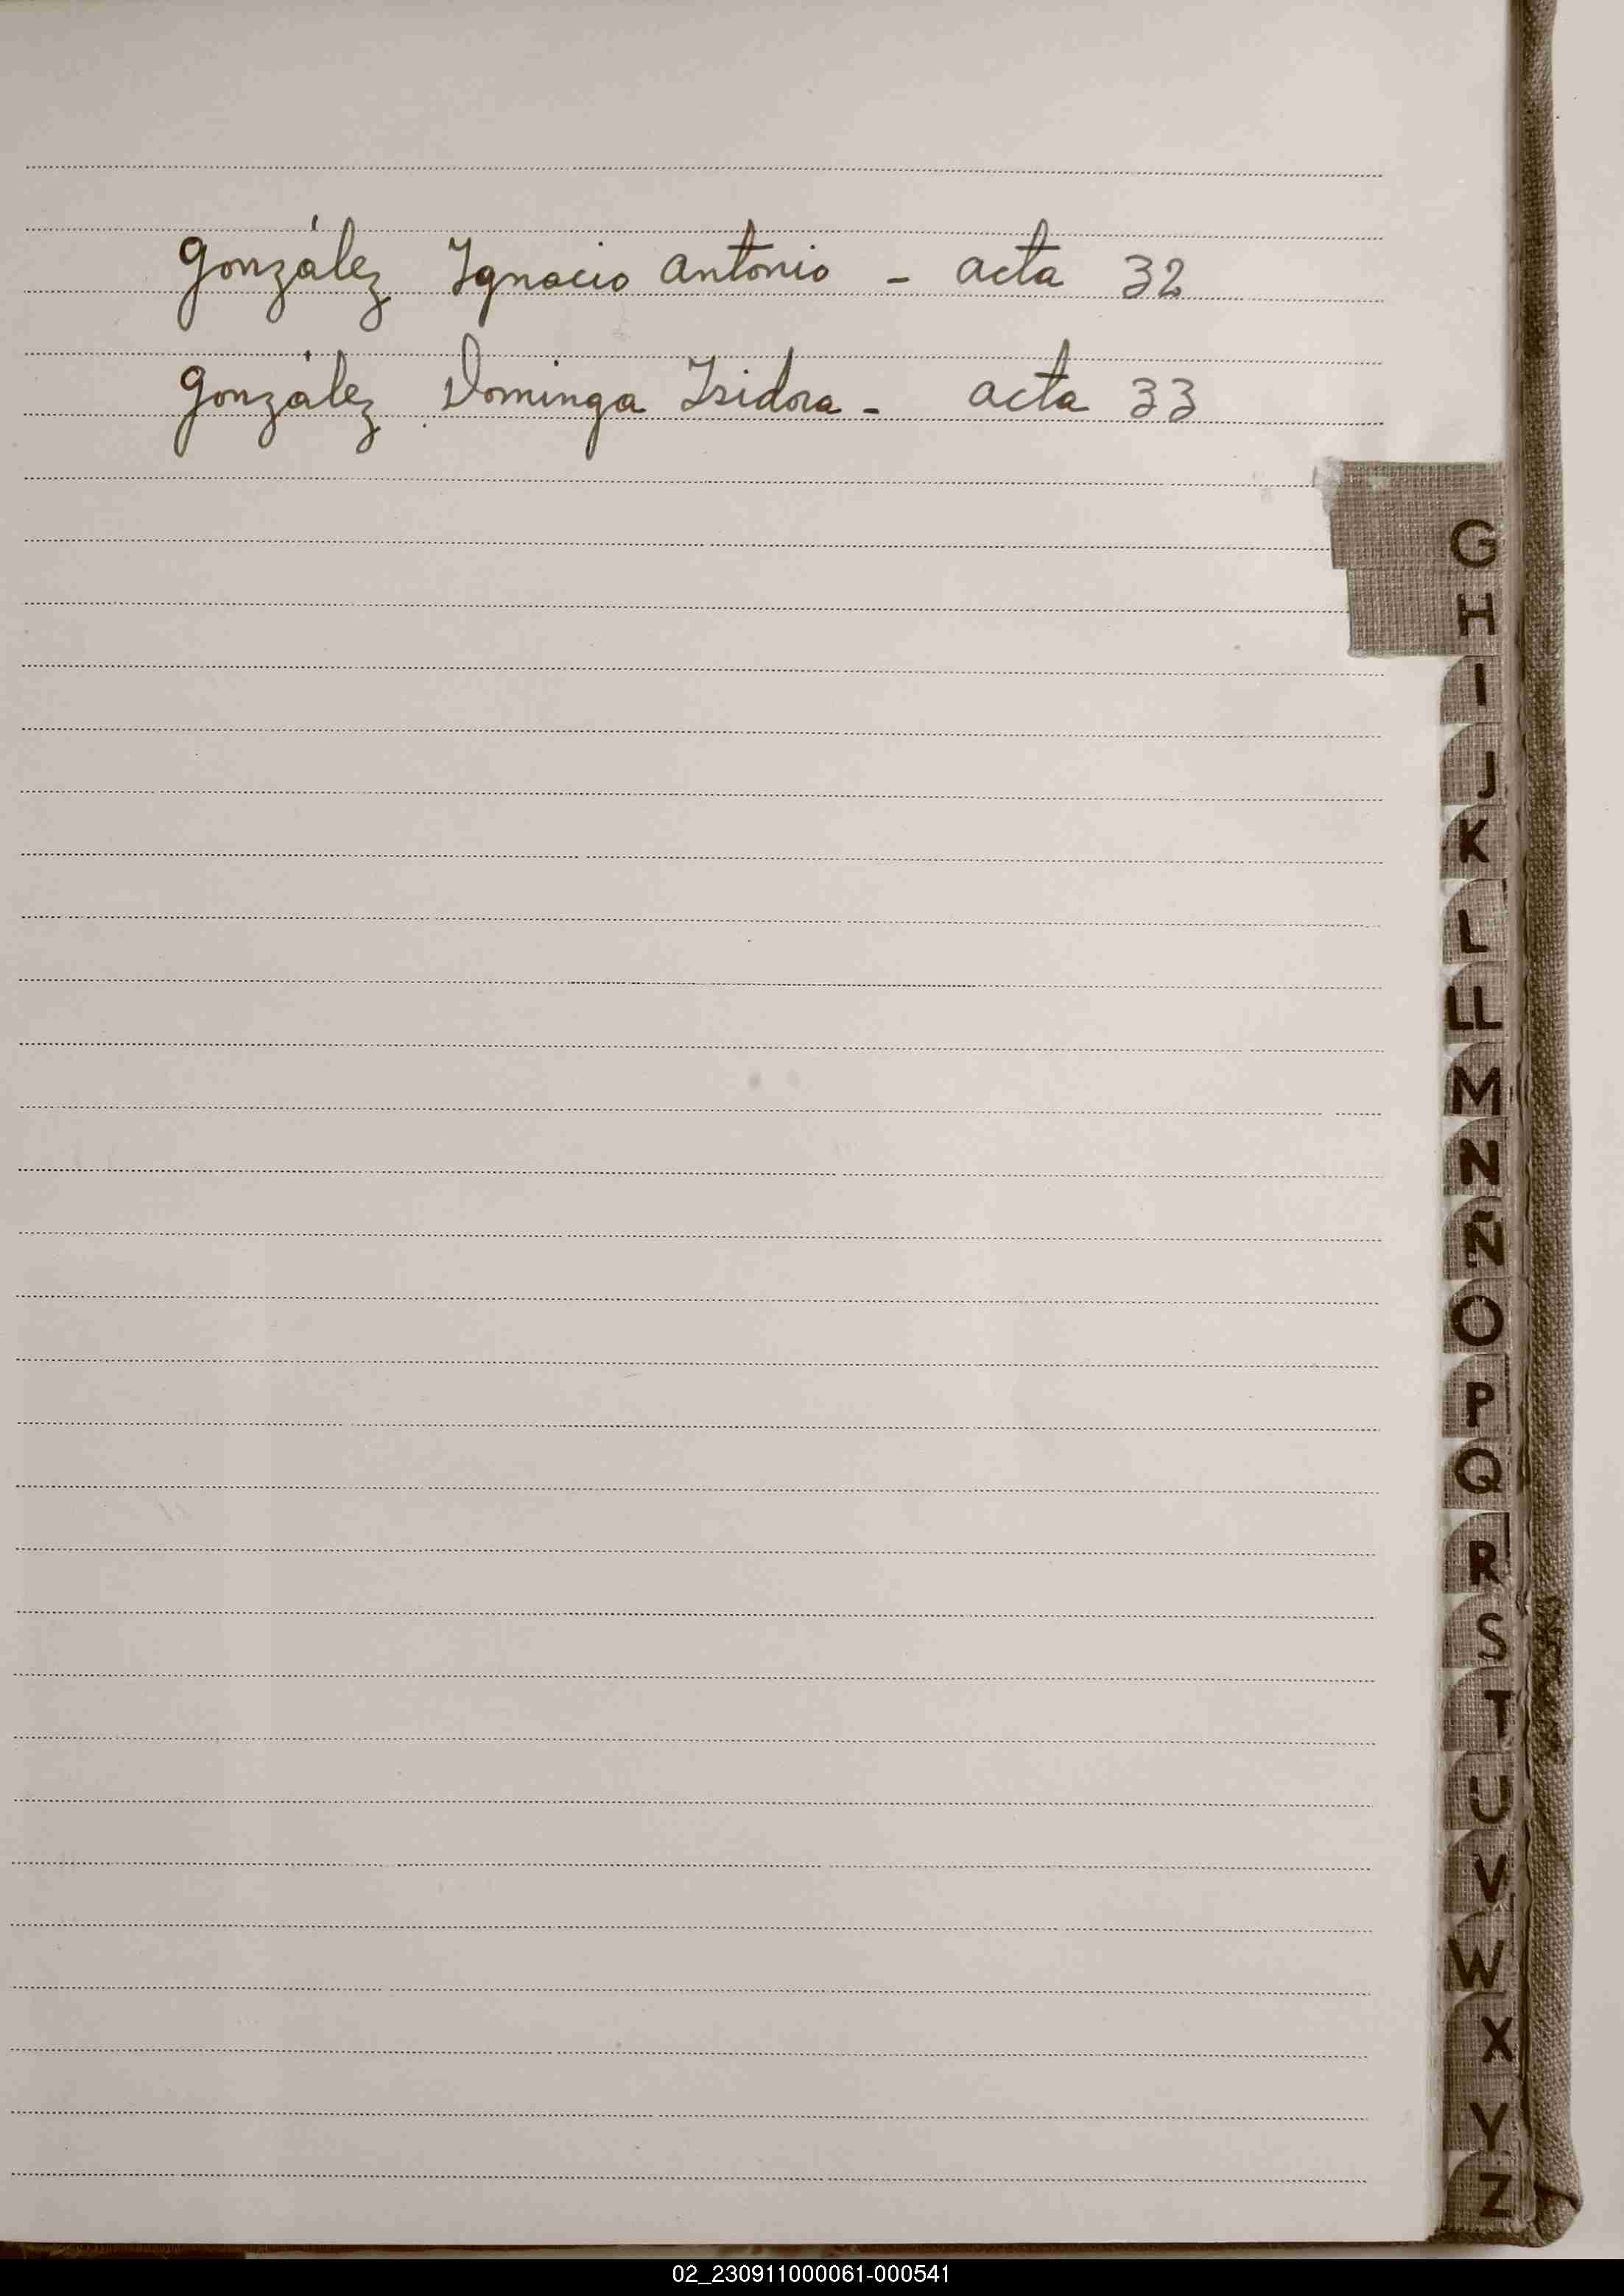 González Ignacio Antonio - acta 32
González Dominga Isidora - acta 33
G
H
I
J
K
L
LL
M
N
Ñ
O
P
Q
R
S
T
U
V
W
X
Y
Z
02_230911000061-000541